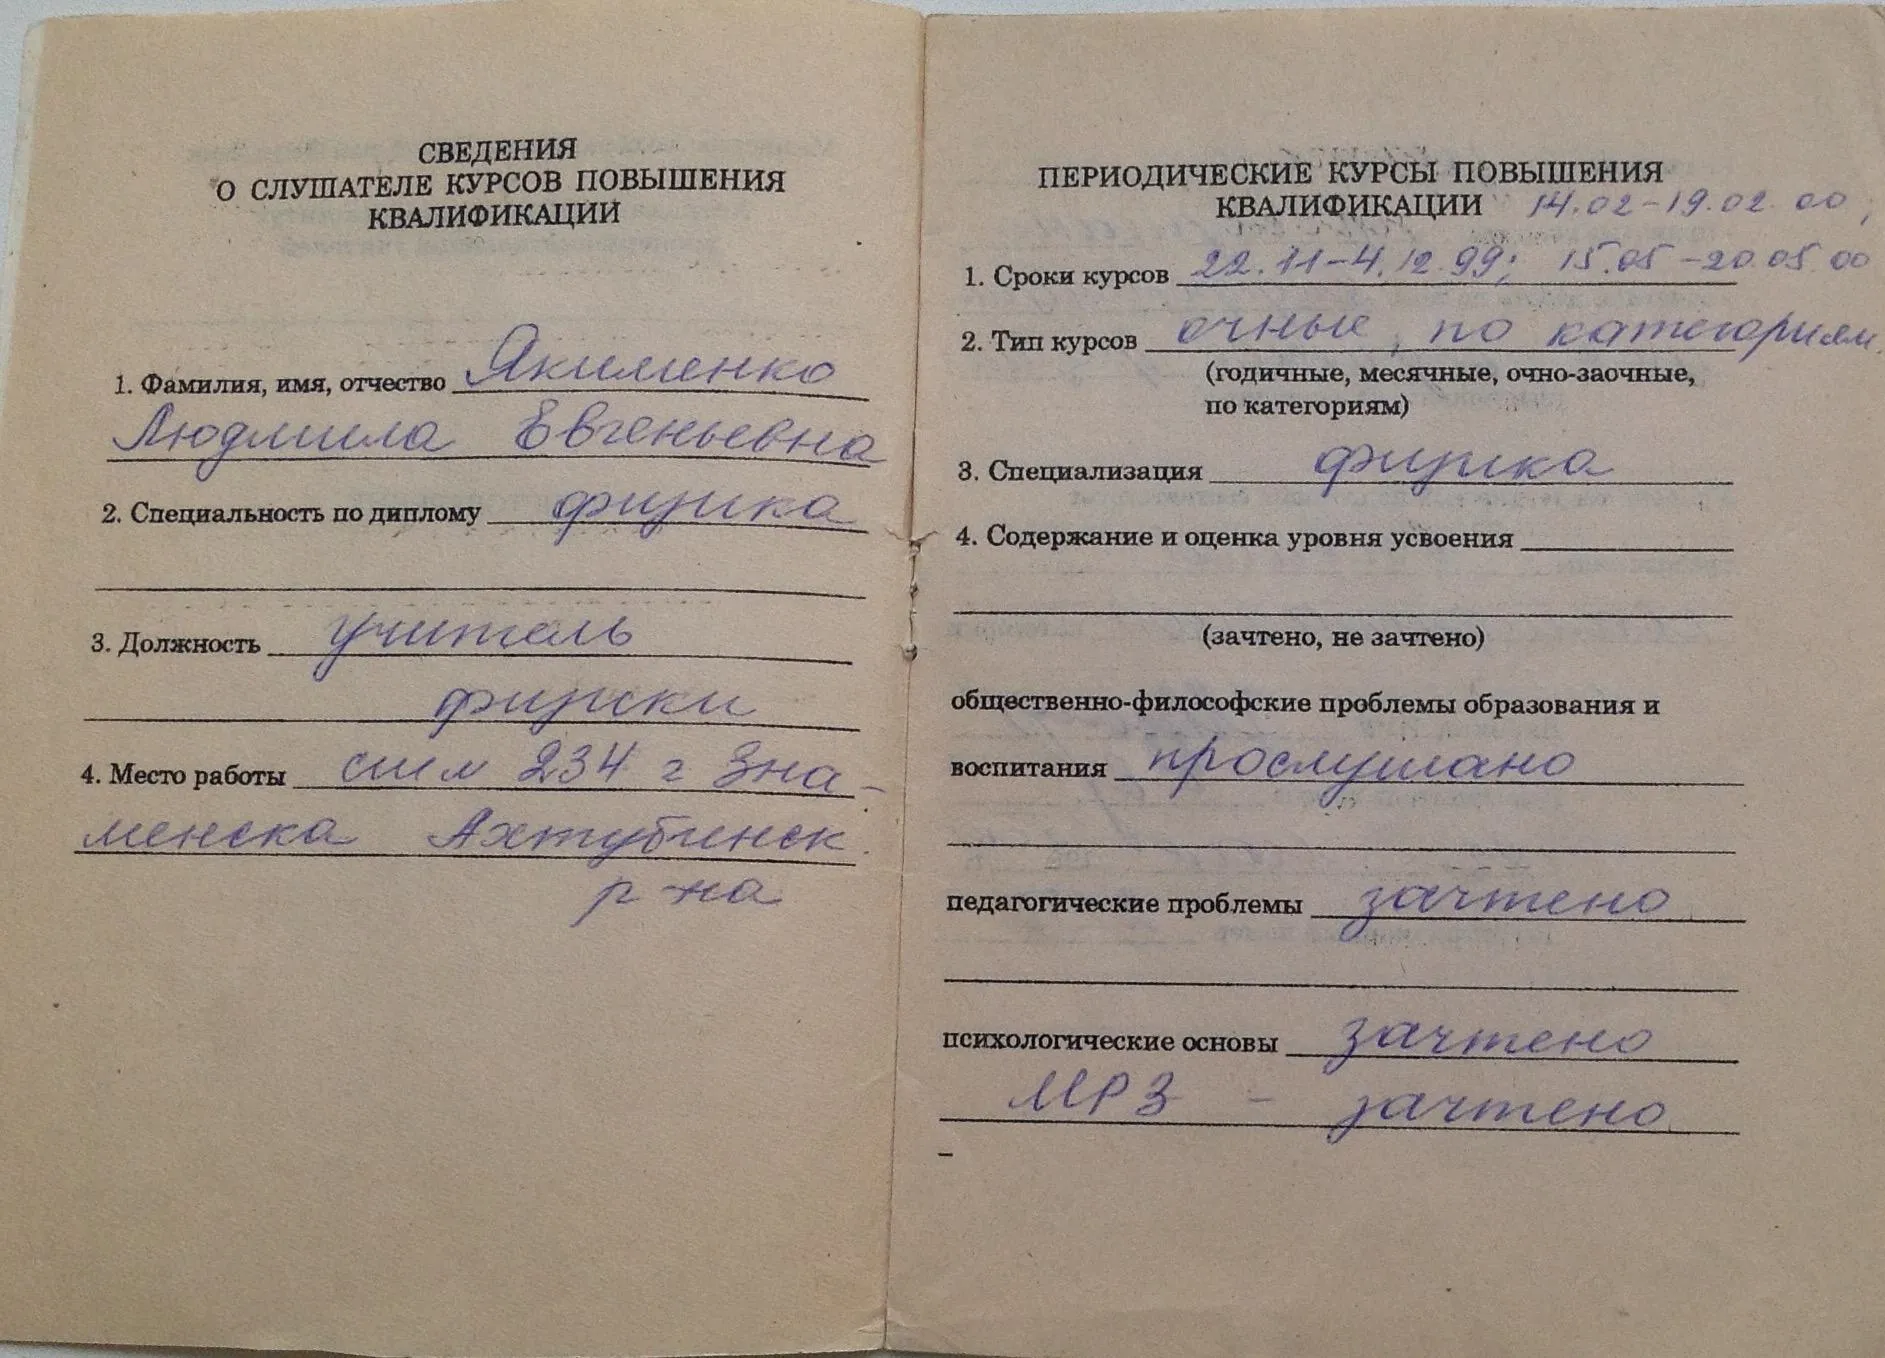 СВЕДЕНИЯ
О СЛУШАТЕЛЕ КУРСОВ ПОВЫШЕНИЯ
КВАЛИФИКАЦИИ
1. Фамилия, имя, отчество Якименко
Людмила Евгеньевна
2. Специальность по диплому физика
3. Должность учитель
физики
4. Место работы 234 г Зна-
менска Ахтубинск.
р-на
ПЕРИОДИЧЕСКИЕ КУРСЫ ПОВЫШЕНИЯ
КВАЛИФИКАЦИИ 14.02-19.02.00;
1. Сроки курсов 22.11-4.12.99; 15.05-20.05.00
2. Тип курсов очные, по категориям.
(годичные, месячные, очно-заочные,
по категориям)
3. Специализация физика
4. Содержание и оценка уровня усвоения
(зачтено, не зачтено)
общественно-философские проблемы образования и
воспитания прослушано
педагогические проблемы зачтено
психологические основы зачтено
МРЗ - зачтено